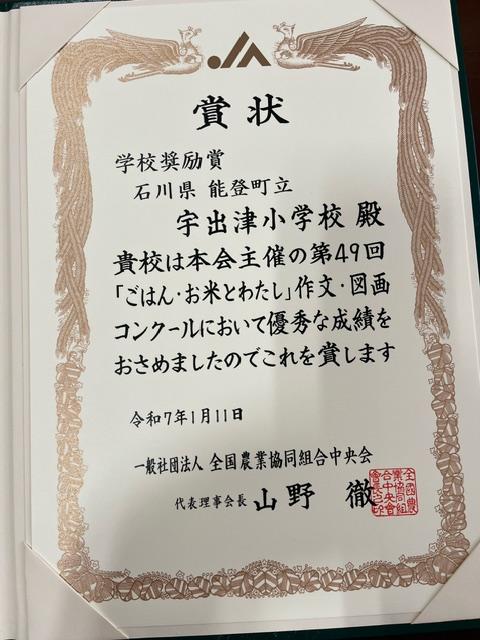 JA
賞状
学校奨励賞
石川県 能登町立
宇出津小学校 殿
貴校は本会主催の第49回
「ごはん・お米とわたし」作文・図画
コンクールにおいて優秀な成績を
おさめましたのでこれを賞します
令和7年1月11日
一般社団法人 全国農業協同組合中央会
代表理事会長 山野 徹
全国農
業協同組
合中央會
會長之印